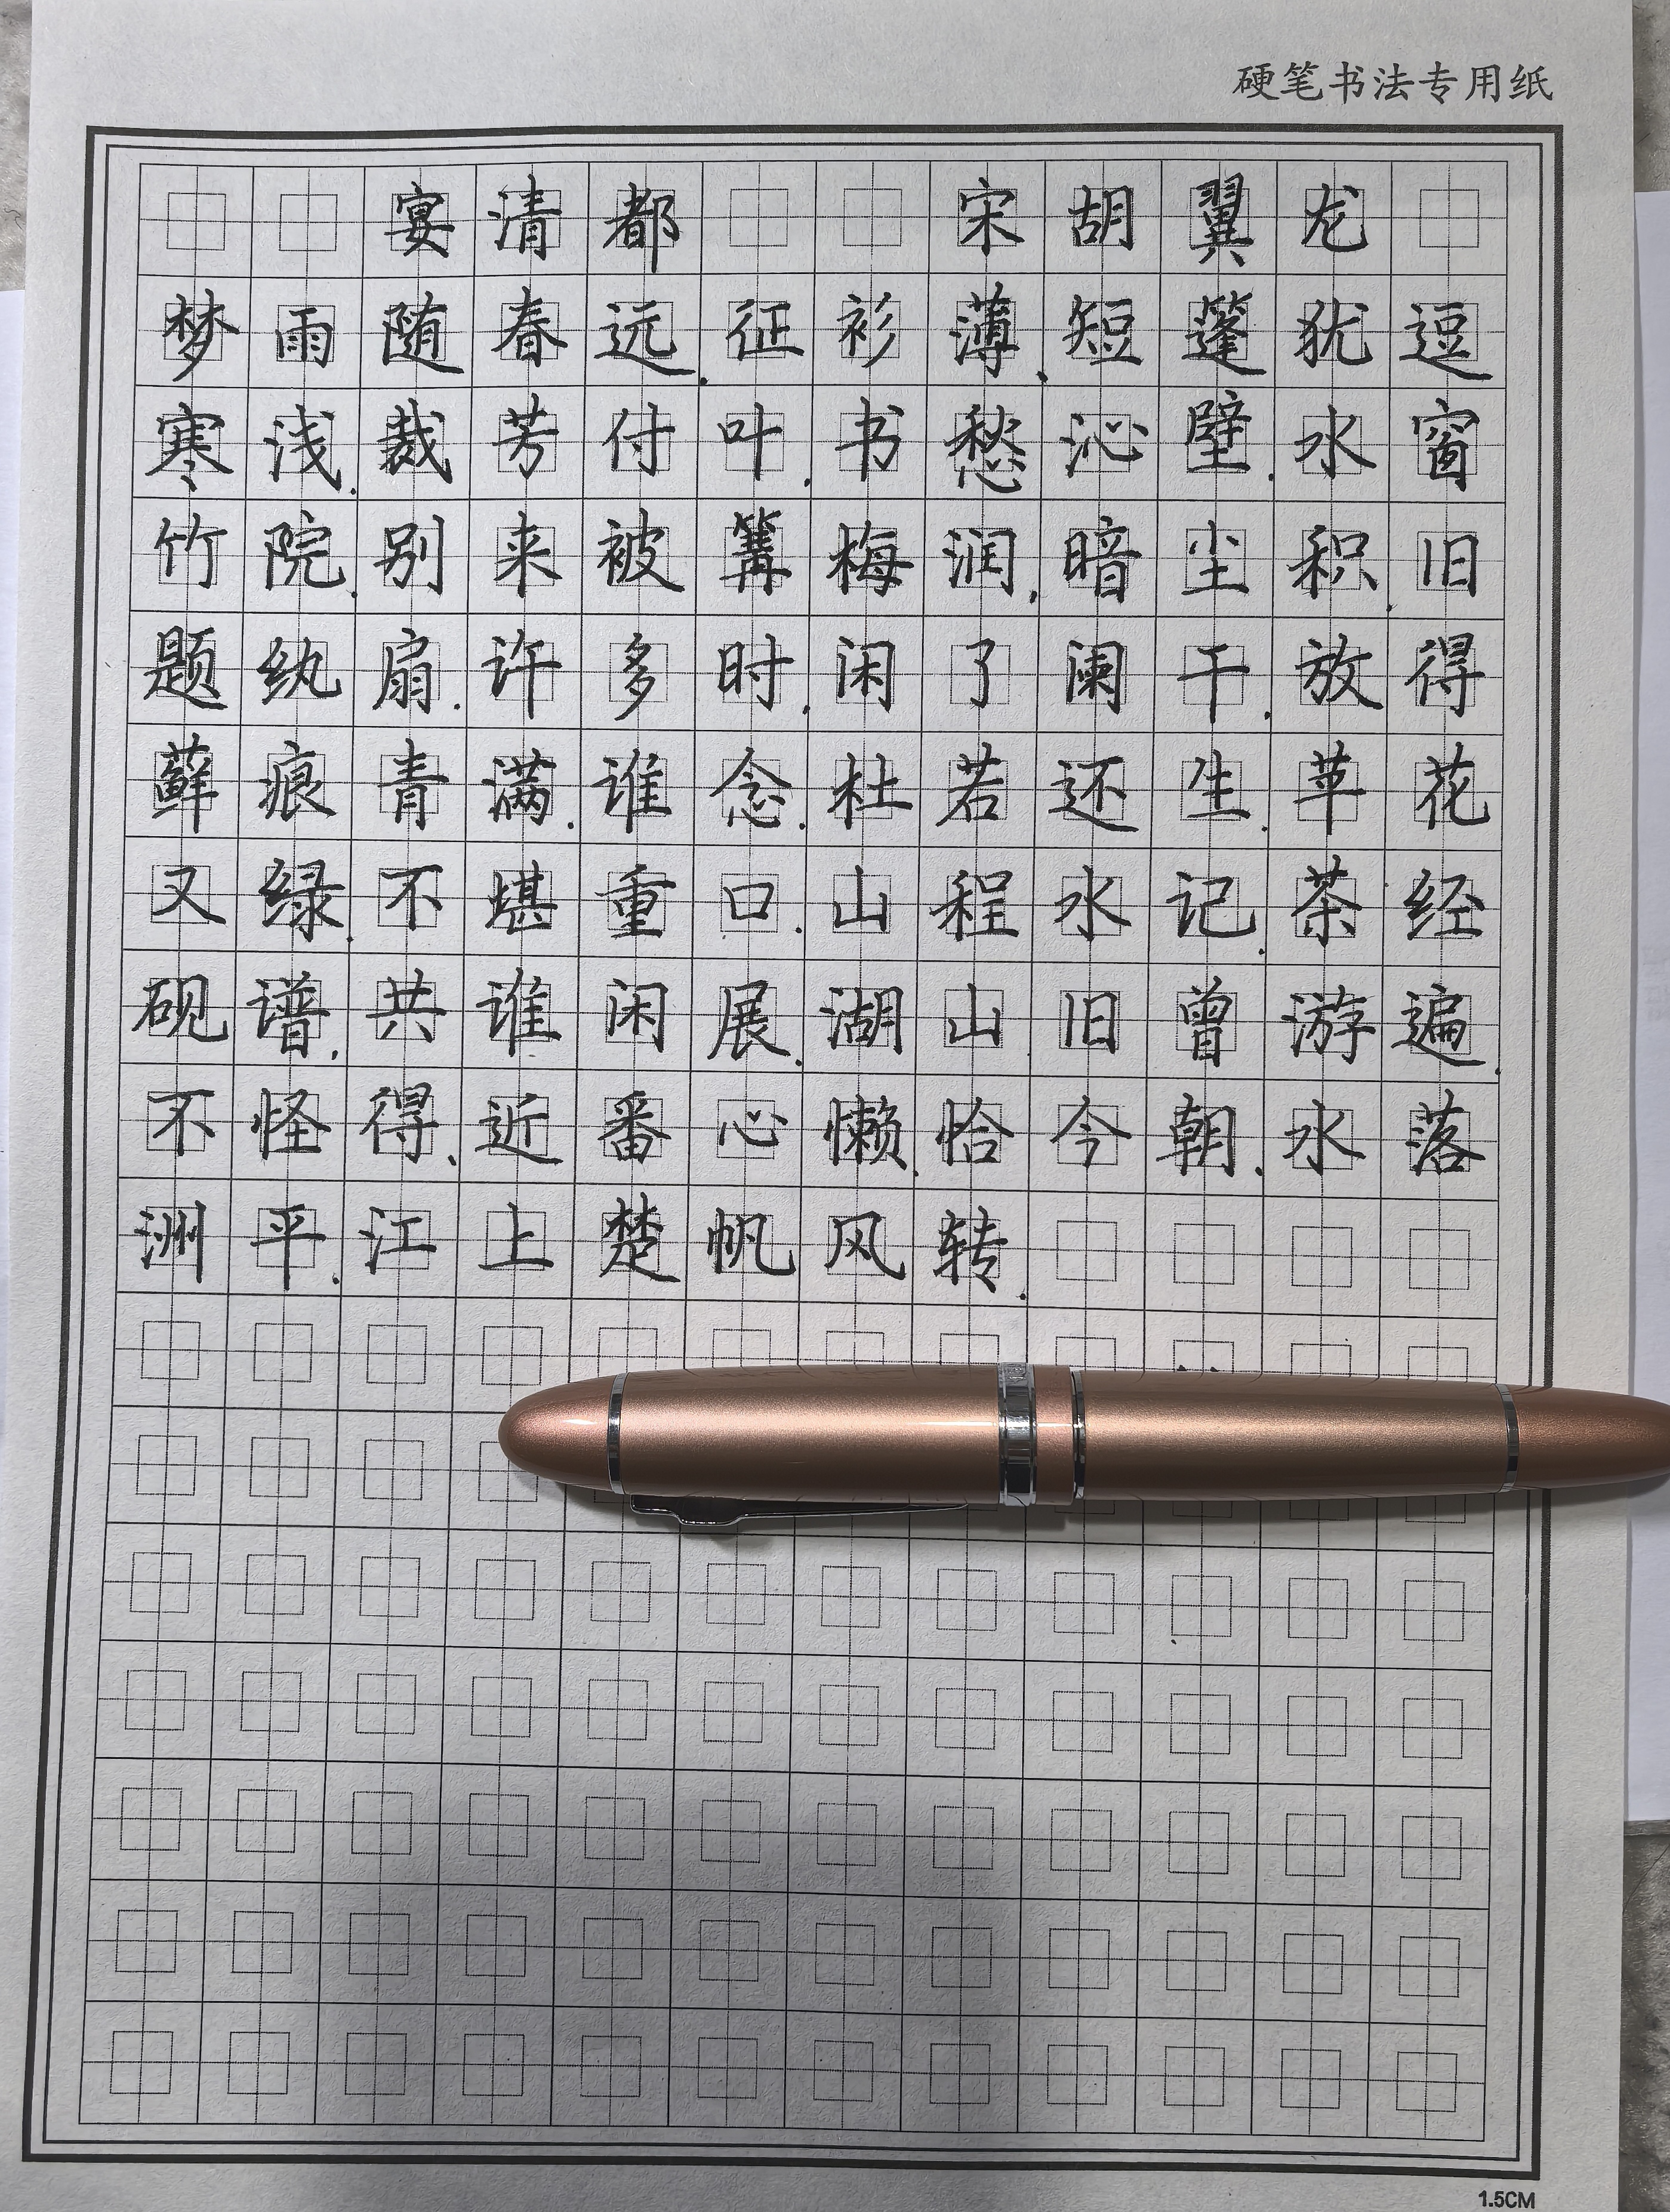 硬笔书法专用纸
宴清都 宋胡翼龙
梦雨随春远.征衫薄、短篷犹逗
寒浅.裁芳付叶.书愁沁壁.水窗
竹院.别来被篝梅润.暗尘积.旧
题纨扇.许多时.闲了阑干.放得
藓痕青满.谁念.杜若还生.苹花
又绿.不堪重口.山程水记.茶经
砚谱.共谁闲展.湖山旧曾游遍.
不怪得、近番心懒.恰今朝.水落
洲平.江上楚帆风转.
1.5CM